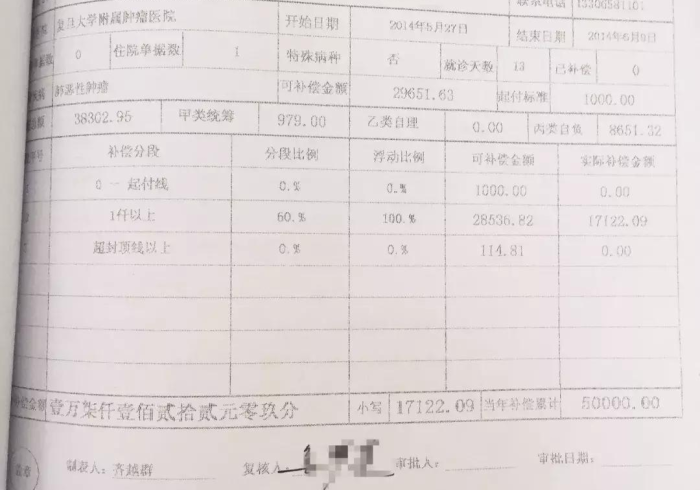 复旦大学附属肿瘤医院 开始日期 2014年5月27日 结束日期 2014年6月9日
0 住院单据数 1 特殊病种 否 就诊天数 13 已补偿 0
肺恶性肿瘤 可补偿金额 29651.63 起付标准 1000.00
38302.95 甲类统筹 979.00 乙类自理 0.00 丙类自负 8651.32
补偿分段 分段比例 浮动比例 可补偿金额 实际补偿金额
0 一 起付线 0.% 0.% 1000.00 0.00
1仟以上 60.% 100.% 28536.82 17122.09
超封顶线以上 0.% 0.% 114.81 0.00
补偿金额 壹万柒仟壹佰贰拾贰元零玖分 小写 17122.09 当年补偿累计 50000.00
制表人: 齐越群 复核人 审批人: 审批日期: